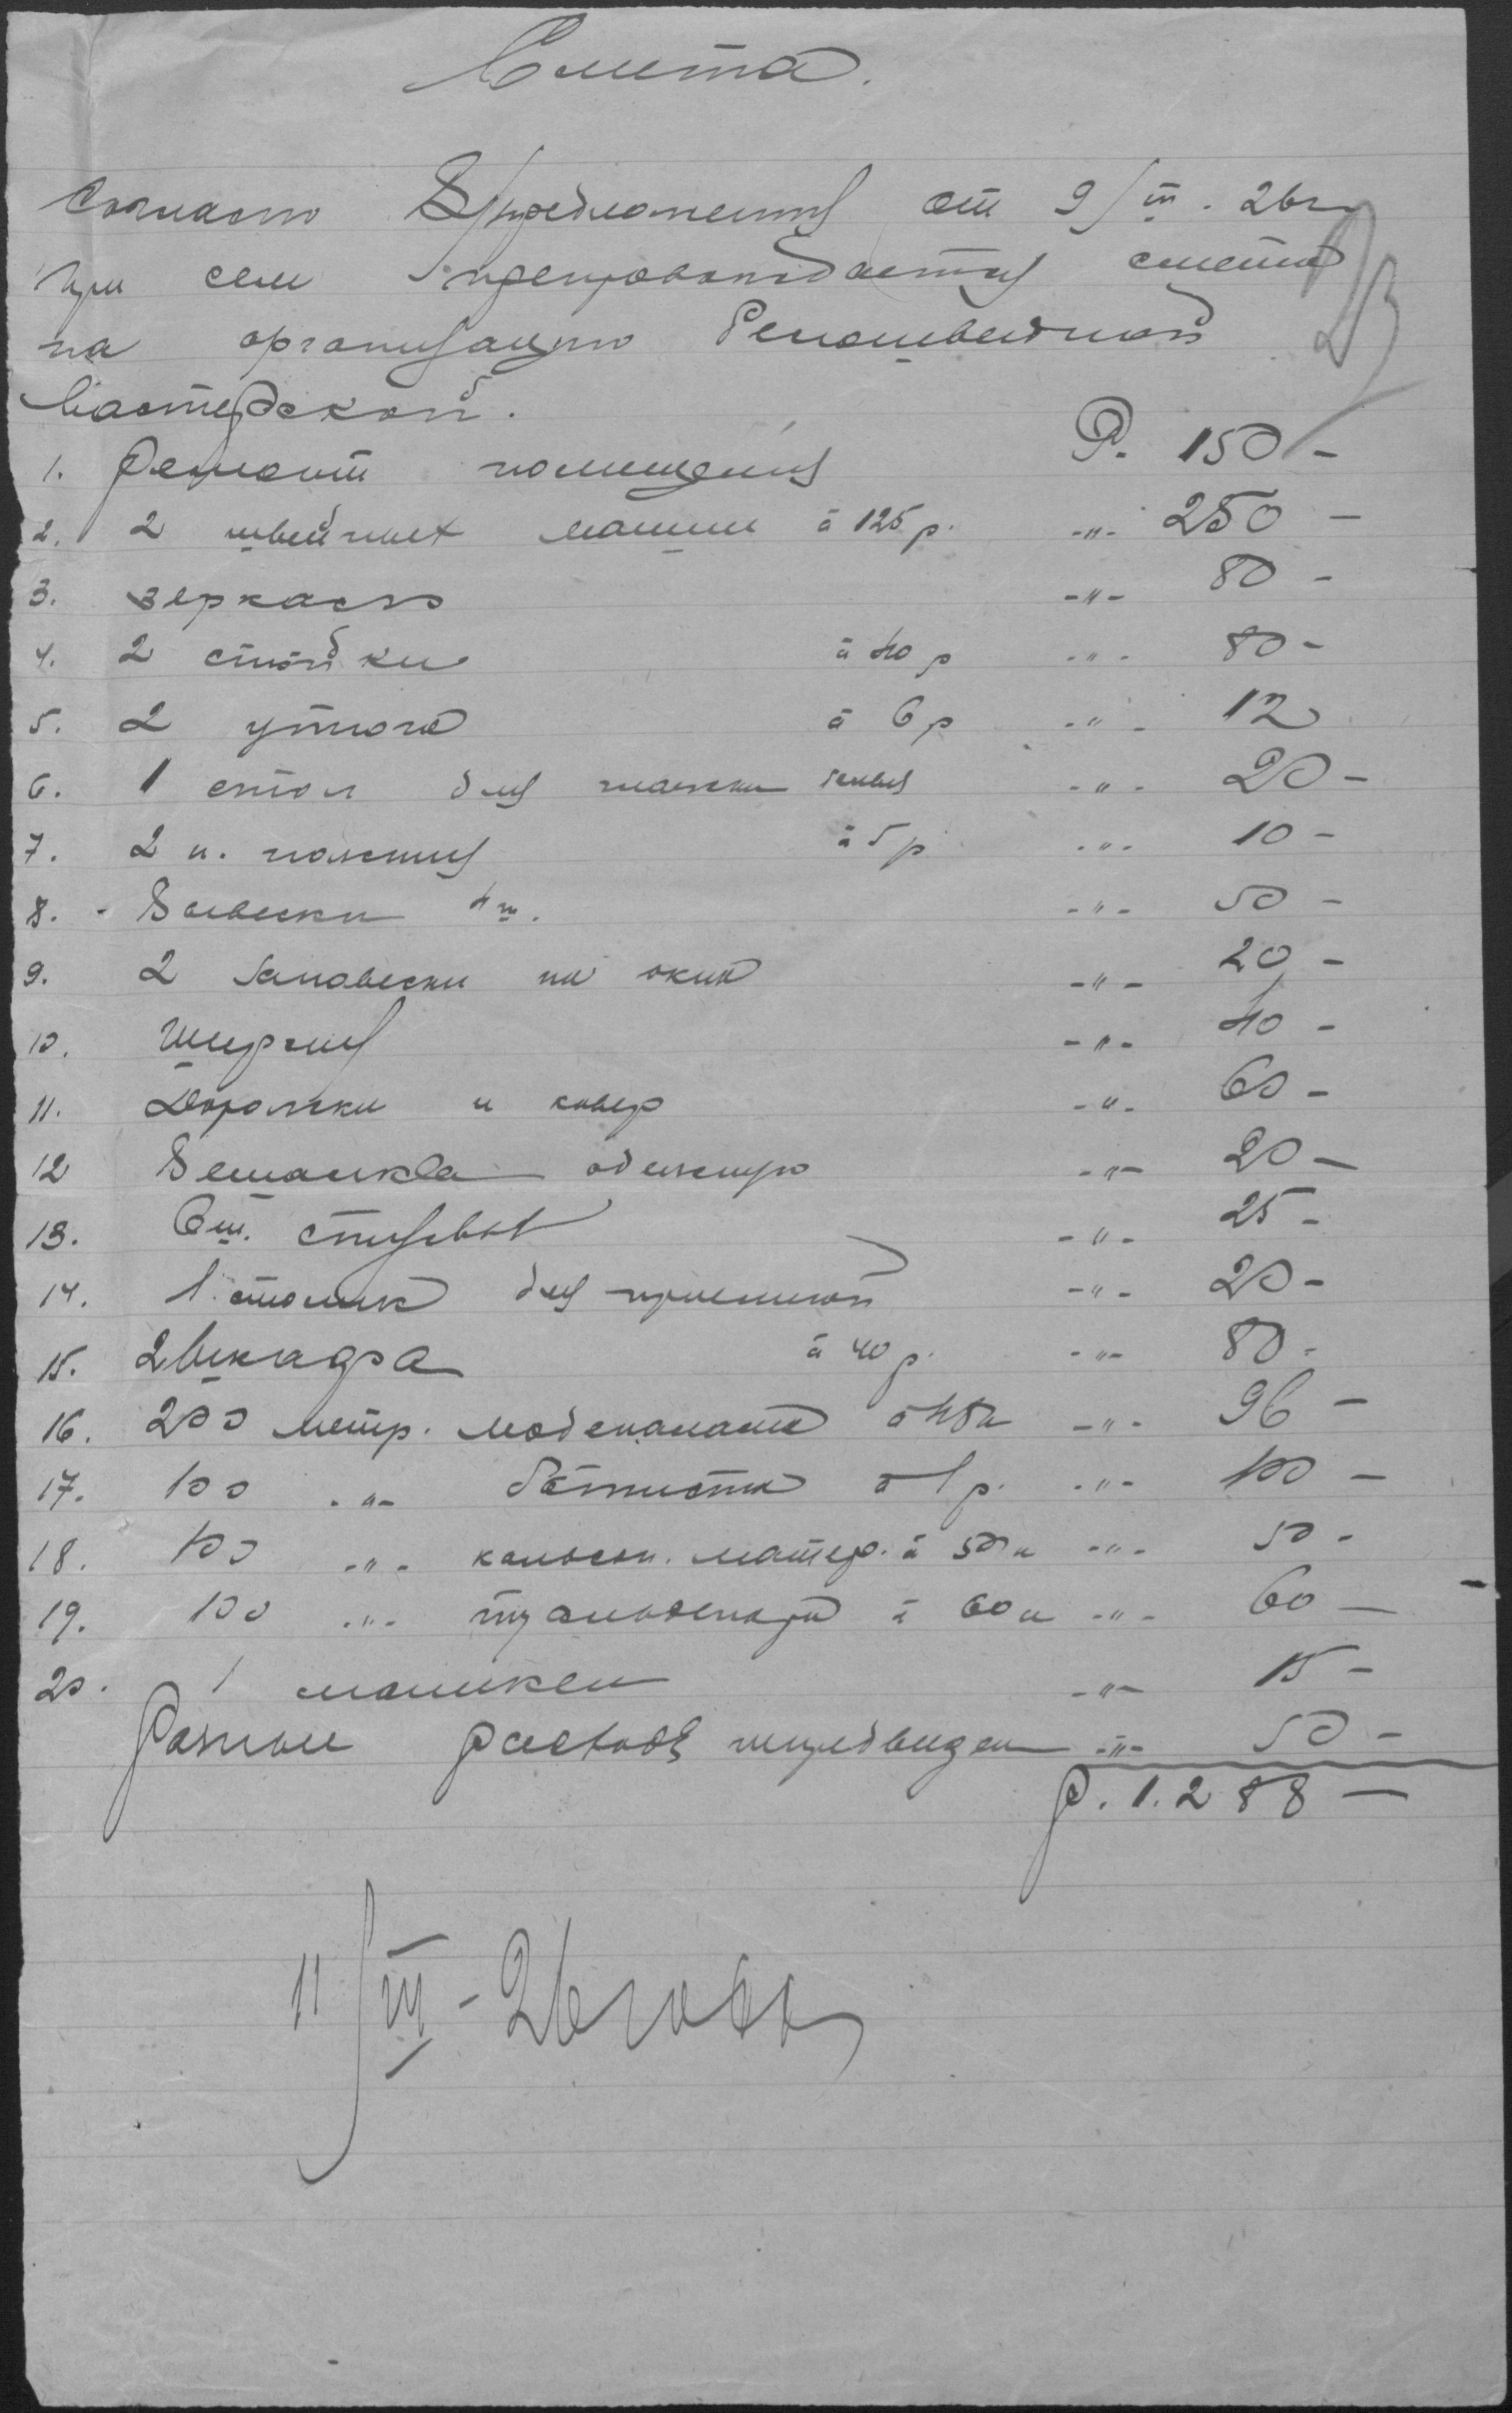 Смета.
Согласно предложения от 9/III. 26 г.
при сем препровождается смета
на организацию белошвейной
мастерской.
1. Ремонт помещения Р. 150 –
2. 2 швейных машин à 125 р. -"- 250 –
3. зеркало -"- 80 –
4. 2 стойки à 40 р -"- 80 –
5. 2 утюга à 6 р -"- 12
6. 1 стол для глажки белья -"- 20 –
7. 2 п. ножниц à 5 р -"- 10 –
8. Вывески 4 ш. -"- 50 –
9. 2 занавески на окна -"- 20 –
10. Ширмы -"- 40 –
11. Дорожки и ковер -"- 60 –
12 Вешалка -"- 20 –
13. 6 ш. стульев -"- 25 –
14. 1 столик для приемной -"- 20 –
15. 2 шкафа à 40 р. -"- 80 –
16. 200 метр. мадеполама à 48 к -"- 96 –
17. 100 -"- батиста à 1 р. -"- 100 –
18. 100 -"- кальсон. матер. à 50 к -"- 50 –
19. 100 -"- à 60 к -"- 60 –
20. 1 манекен -"- 15 –
Разные расходы непредвиден -"- 50 –
Р. 1.288 –
11/III – 26 года